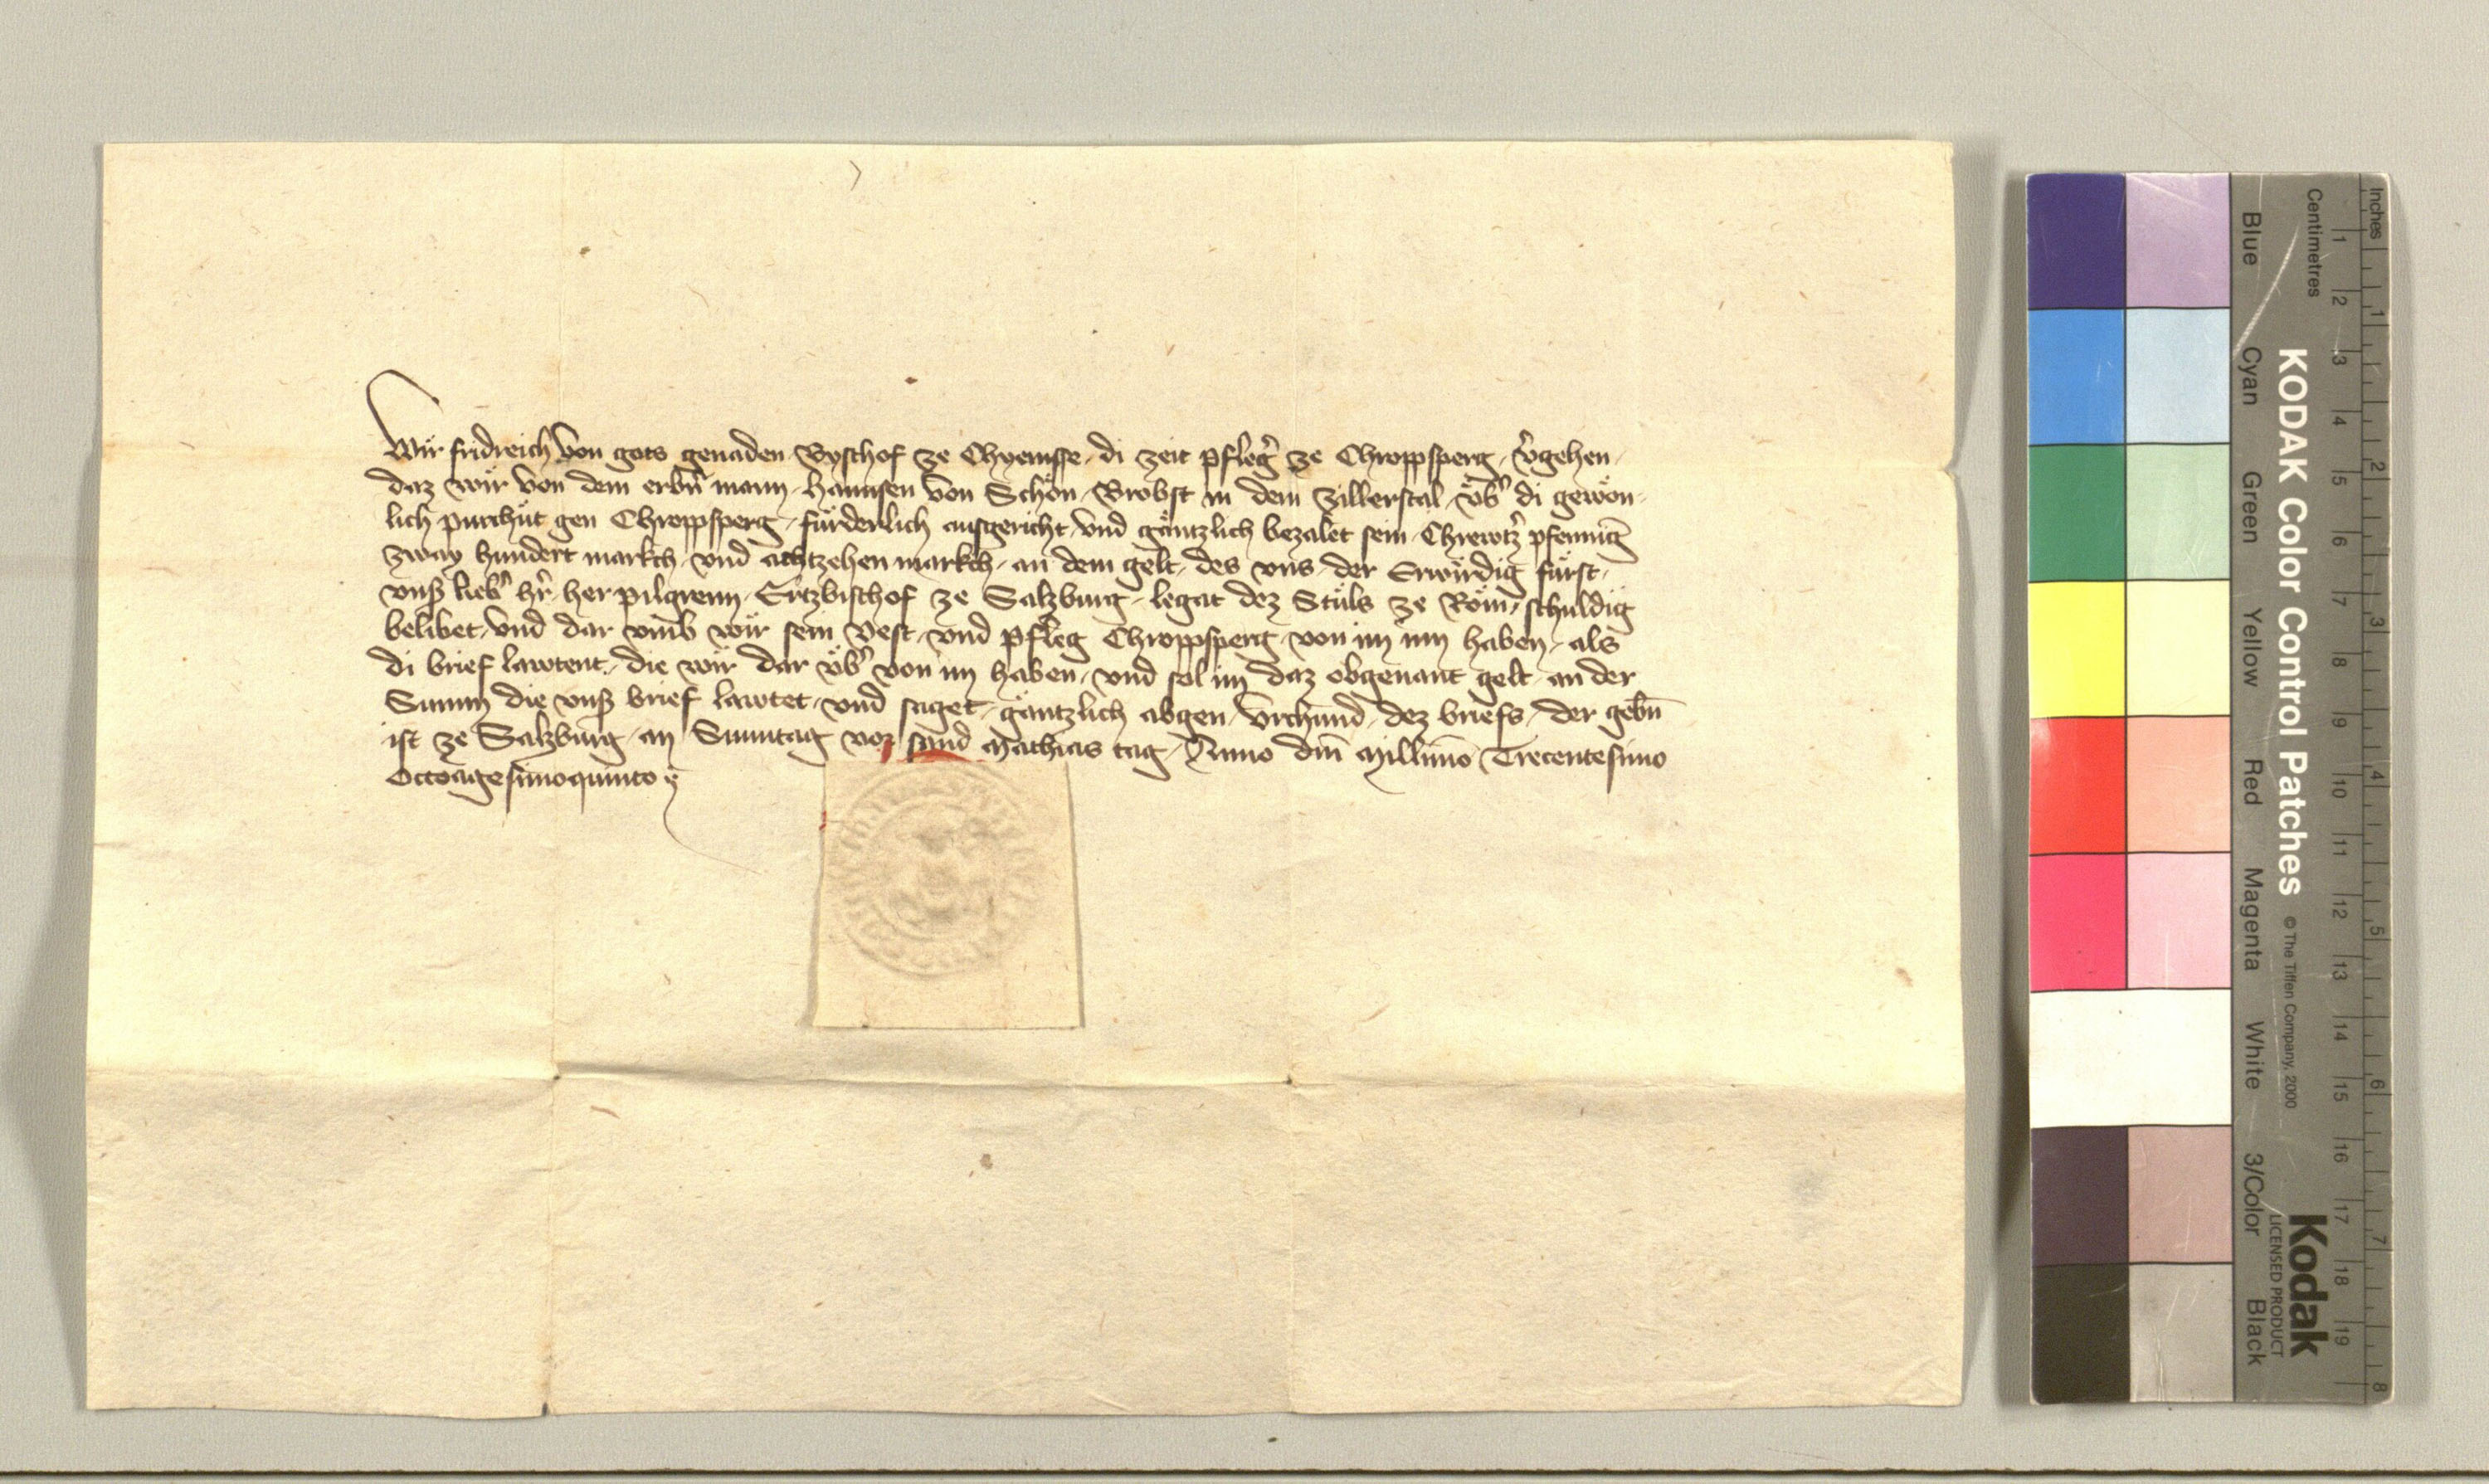 Wir fridreich von gots genaden Byschof ze Chyemsse di zeit Pfleg̉ ze Chroppsperg v̉gehen
daz wir von dem erbn̉ mann Hannsen von Schön Brobst in dem Zillerstal üb̉ di gewön
lich purchůt gen Chroppsperg fürderlich ausgericht vnd gäntzlich bezalet sein Chrewtz̉ pfenniḡ
zway hundert markch vnd achtzehen markch an dem gelt des vns der Erwirdig fürst
vnß lieb̉ hr̉ her pilgreim Ertzbischof ze Salzburg legat dez Stůls ze Röm schuldig
belibet vnd dar vmb wir sein Vest vnd Pfleg Chroppsperg von im inn haben als
di brief lawtent die wir dar üb̉ von im haben vnd sol im daz obgenant gelt an der
Summ die vnß brief lawtet vnd saget gäntzlich abgen Vrchund dez briefs der gebn̄
ist ze Salzburg an Sunntag vor sand Mathias tag Anno dm̄ Millīmo Trecentesimo
Octoagesimoquinto
Inches
Centimetres
1 2 3 4 5 6 7 8 9 10 11 12 13 14 15 16 17 18 19
1 2 3 4 5 6 7 8
KODAK Color Control Patches © The Tiffen Company, 2000
Kodak
LICENSED PRODUCT
Blue Cyan Green Yellow Red Magenta White 3/Color Black